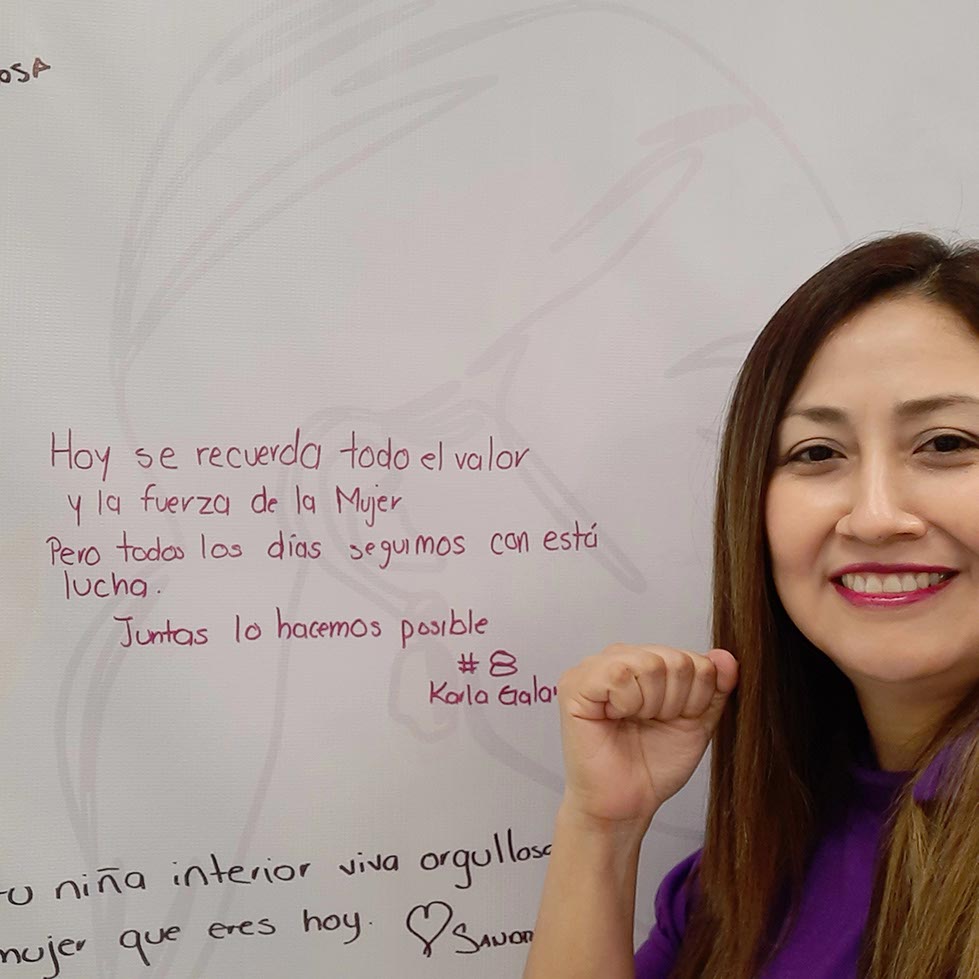 OSA
Hoy se recuerda todo el valor
y la fuerza de la Mujer
Pero todos los días seguimos con está
lucha.
Juntas lo hacemos posible
#8
Karla
tu niña interior viva orgullosa
mujer que eres hoy.